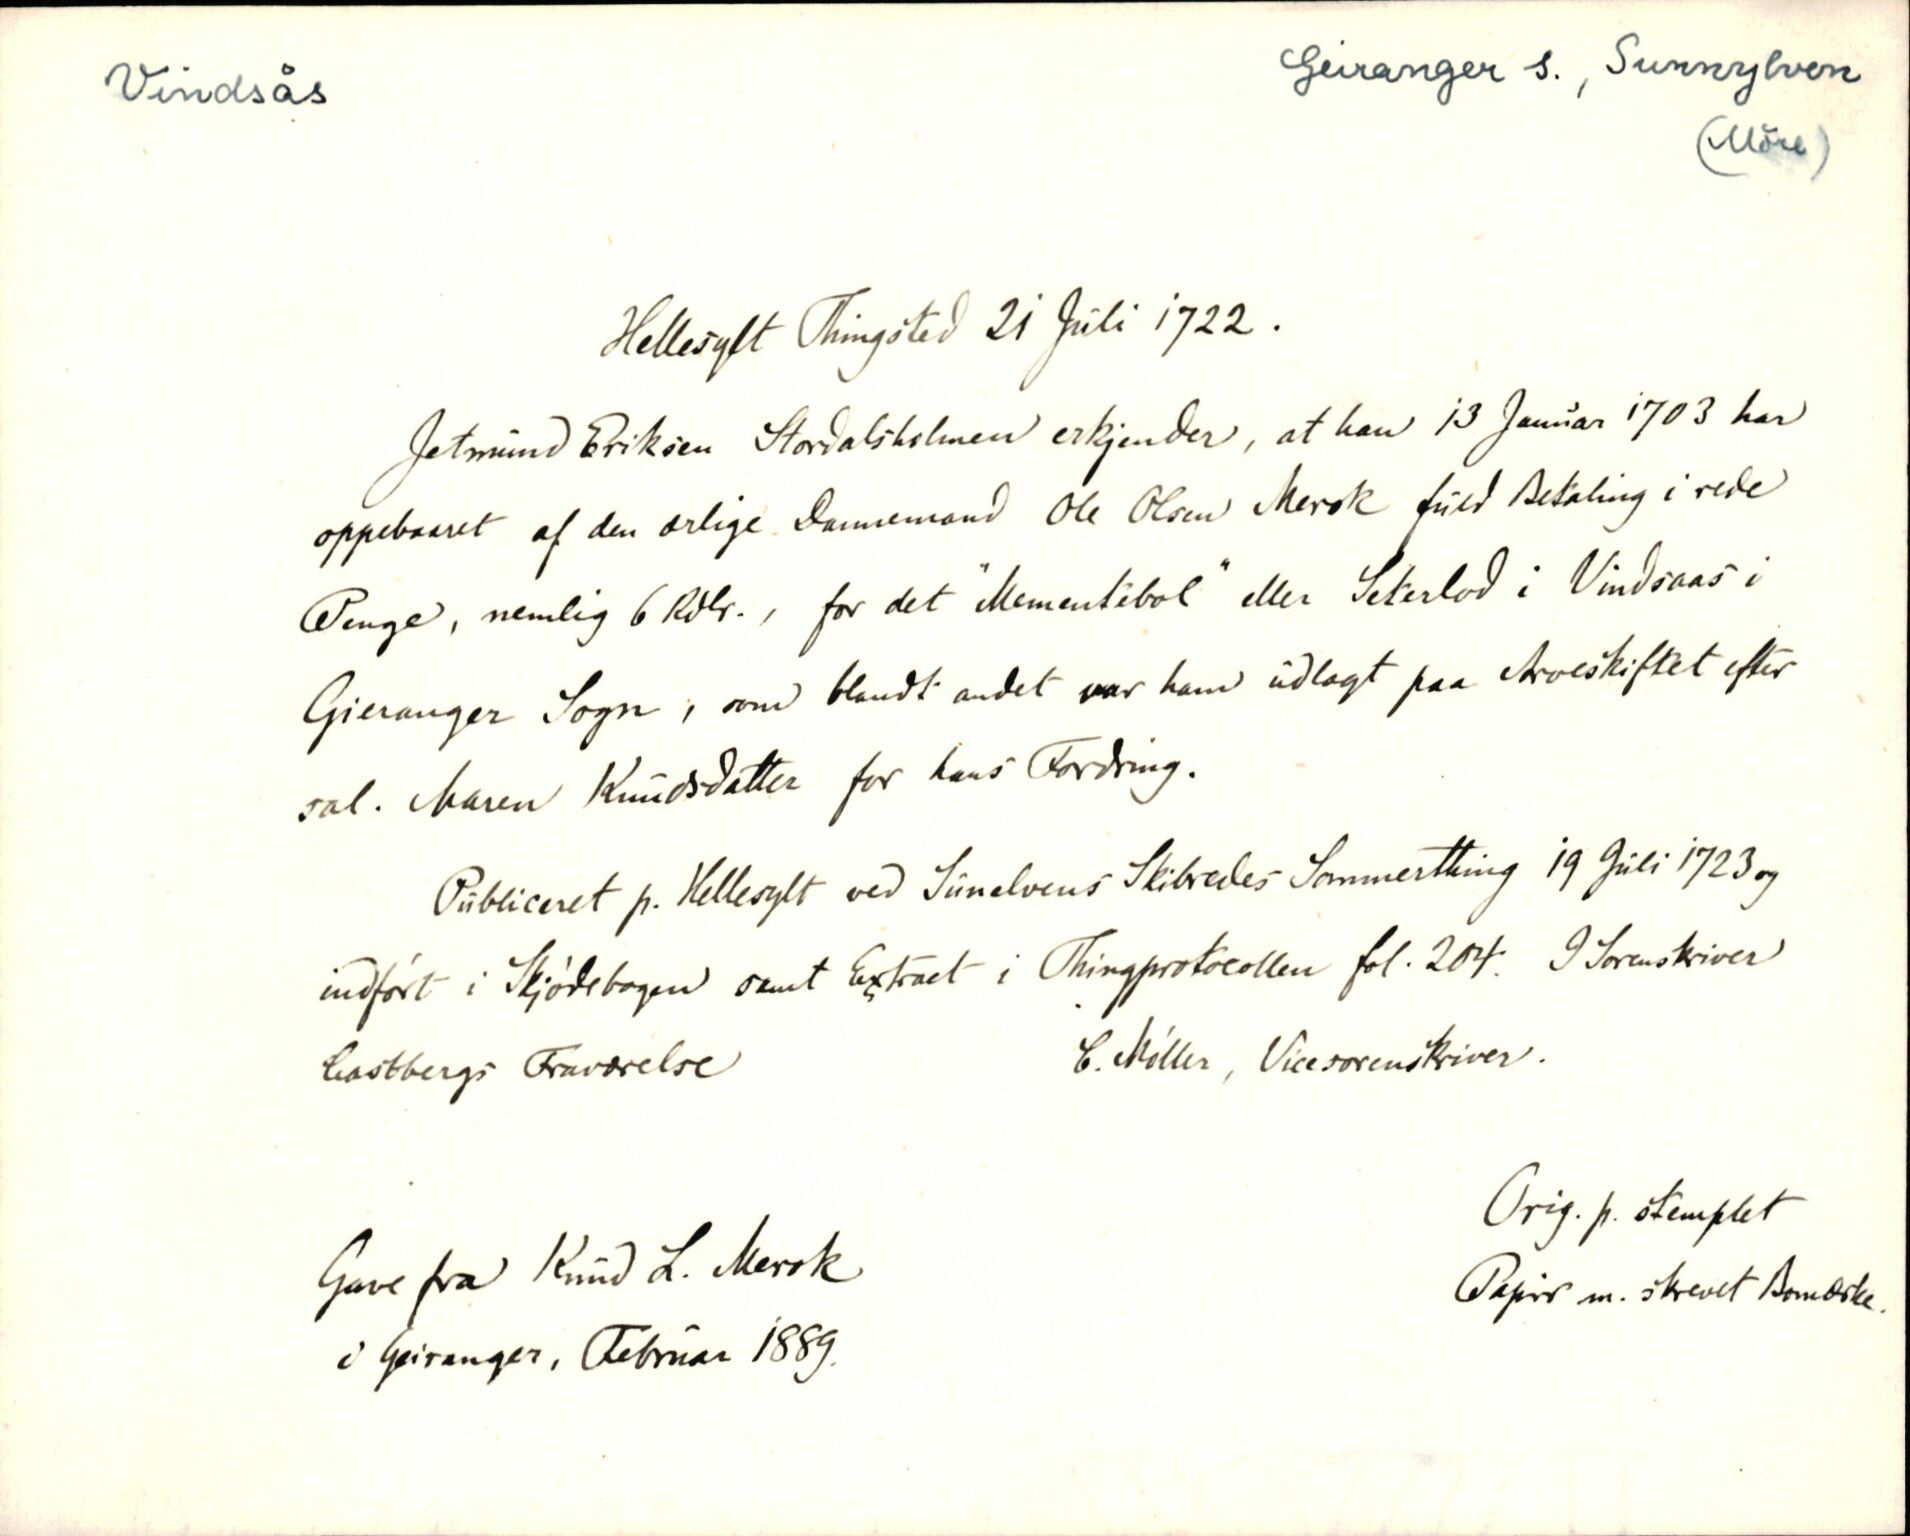 Vindsås
Geiranger s., Sunnylven
(Möre)
Hellesylt Thingsted 21 Juli 1722.
Jetmund Eriksen Stordalsholmen erkjender, at han 13 Januar 1703 har
oppebaaret af den ærlige Dannemand Ole Olsen Merok fuld Betaling i rede
Penge, nemlig 6 Rdlr., for det "Mementebol" eller Seterlod i Vindsaas i
Gieranger Sogn, som blandt andet var ham udlagt paa Arveskiftet efter
sal. Maren Knudsdatter for hans Fordring.
Publiceret p. Hellesylt ved Sunelvens Skibredes Sommerthing 19 Juli 1723 og
indført i Skjødebogen samt Extract i Thingprotocollen fol. 204. I Sorenskriver
Castbergs Fraværelse C. Møller, Vicesorenskriver.
Orig. p. stemplet
Papir m. skrevet Bomærke.
Gave fra Knud L. Merok
i Geiranger, Februar 1889.